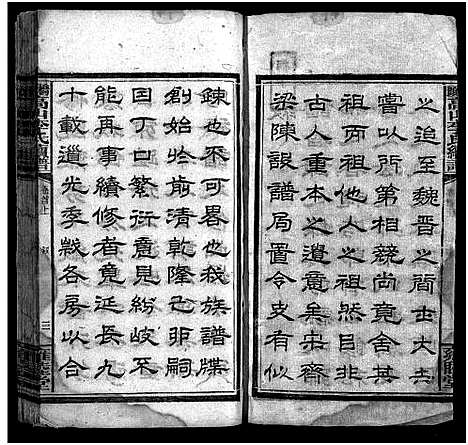 之追至魏晉之間士大夫
嘗以所第相競尚竟舍其
祖而祖他人之祖然目非
古人重本之遺意矣宋齊
梁陳設譜局置令史有似
鍊也可畧也我族譜牒
創始於前清乾隆己卯嗣
因丁口繁衍意見紛歧不
能再事續修者竟延長九
十載道光季裁各房以合
三